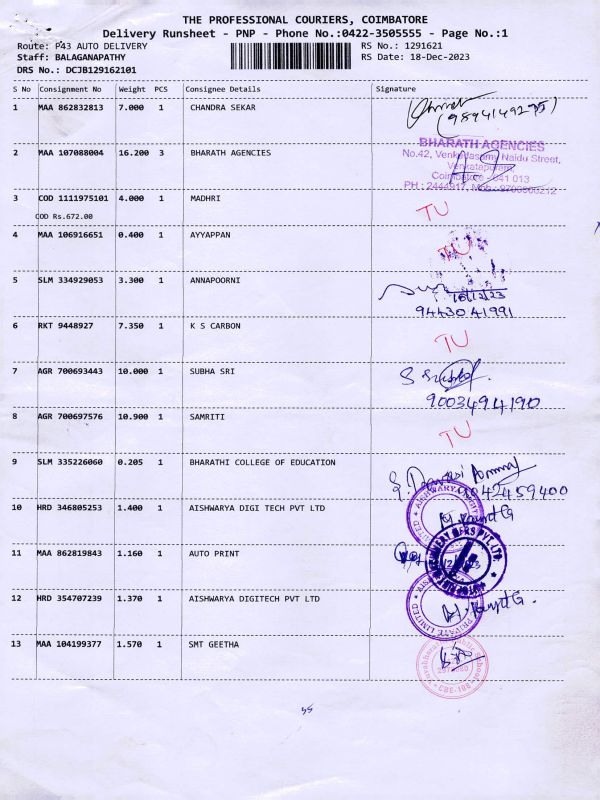 THE PROFESSIONAL COURIERS, COIMBATORE
Delivery Runsheet - PNP - Phone No.:0422-3505555 - Page No.:1
Route: P43 AUTO DELIVERY RS No.: 1291621
Staff: BALAGANAPATHY RS Date: 18-Dec-2023
DRS No.: DCJB129162101
S No Consignment No Weight PCS Consignee Details Signature
1 MAA 862832813 7.000 1 CHANDRA SEKAR
(9894149275)
2 MAA 107088004 16.200 3 BHARATH AGENCIES
BHARATH AGENCIES
No.42, Venkatasamy Naidu Street,
Venkatapuram,
Coimbatore - 641 013
3 COD 1111975101 4.000 1 MADHRI TU
COD Rs.672.00
4 MAA 106916651 0.400 1 AYYAPPAN TU
5 SLM 334929053 3.300 1 ANNAPOORNI
18/12/23
94430 41991
6 RKT 9448927 7.350 1 K S CARBON TU
7 AGR 700693443 10.000 1 SUBHA SRI
9003494190
8 AGR 700697576 10.900 1 SAMRITI TU
9 SLM 335226060 0.205 1 BHARATHI COLLEGE OF EDUCATION
10 HRD 346805253 1.400 1 AISHWARYA DIGI TECH PVT LTD
11 MAA 862819843 1.160 1 AUTO PRINT
12 HRD 354707239 1.370 1 AISHWARYA DIGITECH PVT LTD
PRIVATE LIMITED
13 MAA 104199377 1.570 1 SMT GEETHA